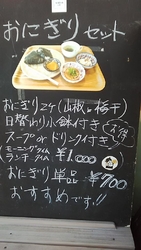 おにぎりセット
おにぎり2ケ(山椒.梅干)
日替わり小鉢付き
スープorドリンク付き
お得
モーニングタイム
ランチタイム ¥1,000
おにぎり単品 ¥700
おすすめです!!